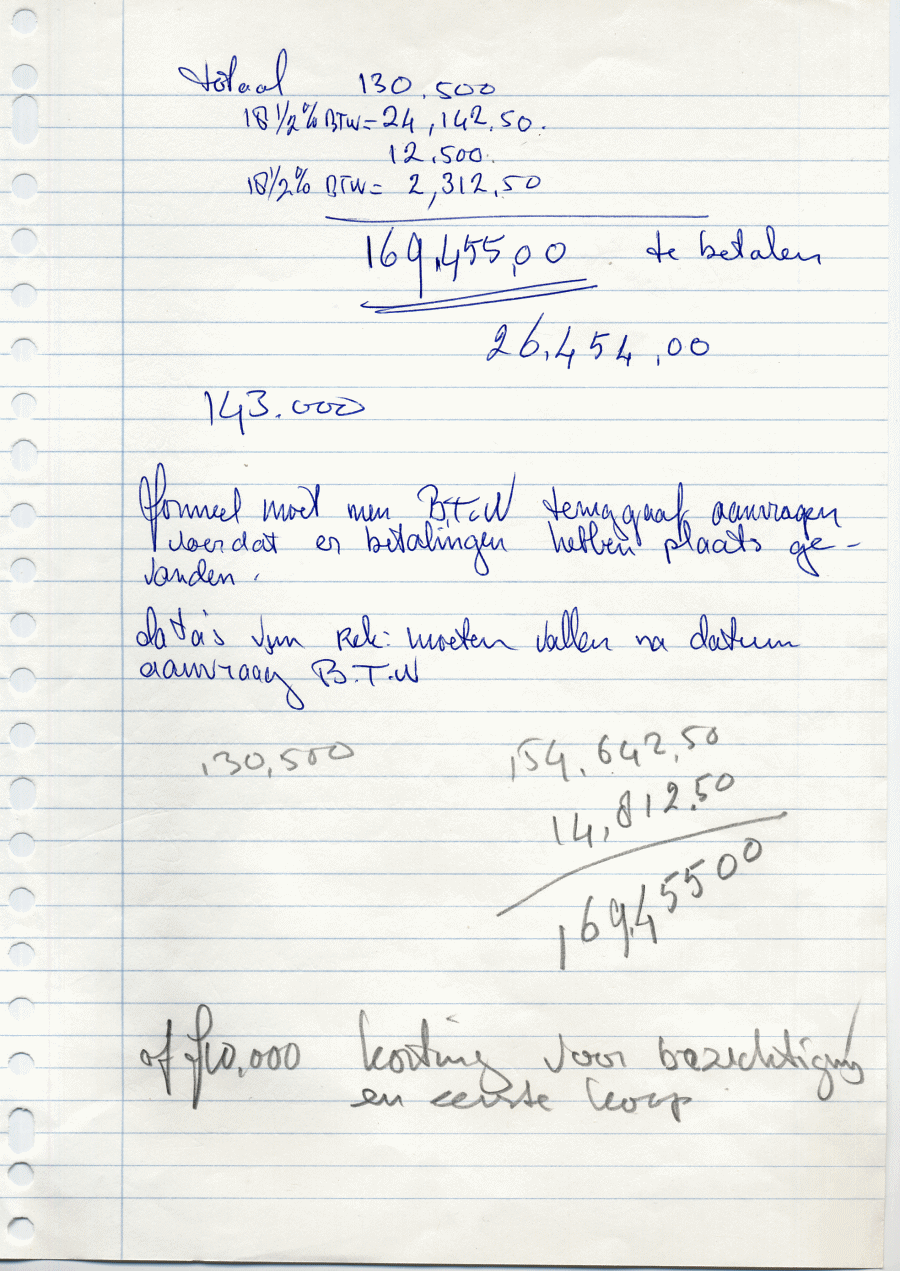 totaal 130.500
18 1/2% BTW = 24,142.50.
12.500.
18 1/2% BTW = 2,312.50
169,455,00 te betalen
26.454,00
143.000
formeel moet men B.T.W teruggaaf aanvragen
voordat er betalingen hebben plaats ge-
vonden.
data's van rek: moeten vallen na datum
aanvraag B.T.W
130,500 154.642,50
14,812.50
169.45500
of f10.000 korting voor bezichtiging
en eerste koop